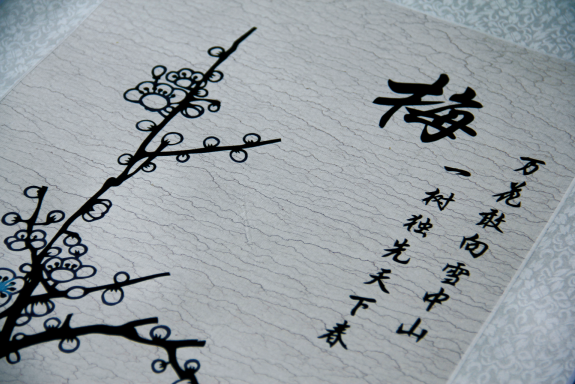 梅
万花敢向雪中山
一树独先天下春